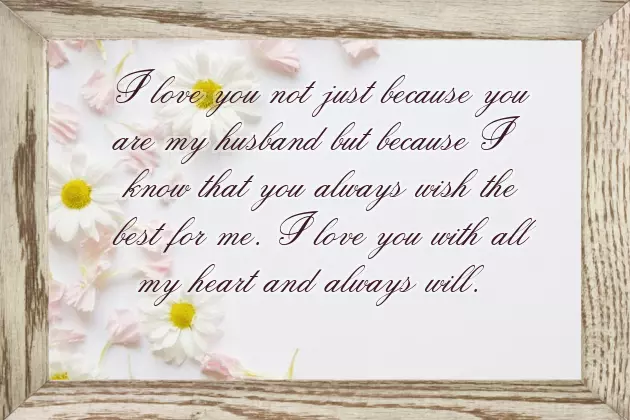 I love you not just because you
are my husband but because I
know that you always wish the
best for me. I love you with all
my heart and always will.